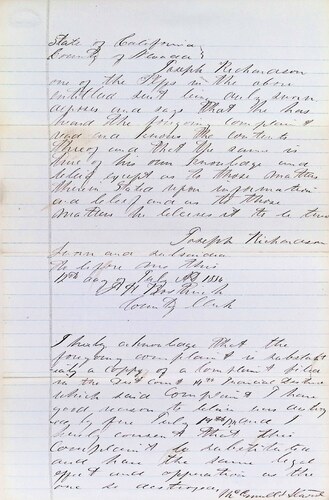 State of California
County of Nevada
Joseph Richardson
one of the Plffs in the above
entitled suit being duly sworn
deposes and says that he has
heard the foregoing complaint
read and knows the contents
thereof and that the same is
true of his own knowledge and
belief except as to those matters
therein stated upon information
and belief and as to those
matters he believes it to be true
Joseph Richardson
Sworn and subscribed
to before me this
day of July AD
County Clerk
I hereby acknowledge that the
foregoing complaint is substan
with a coppy of a complaint filed
in the Dist Court Judicial District
which said Complaint I have
good reason to was
by fire July and I
hereby consent that this
Complaint be substituted
and have the same legal
effect and opperation as the
one so destroyed